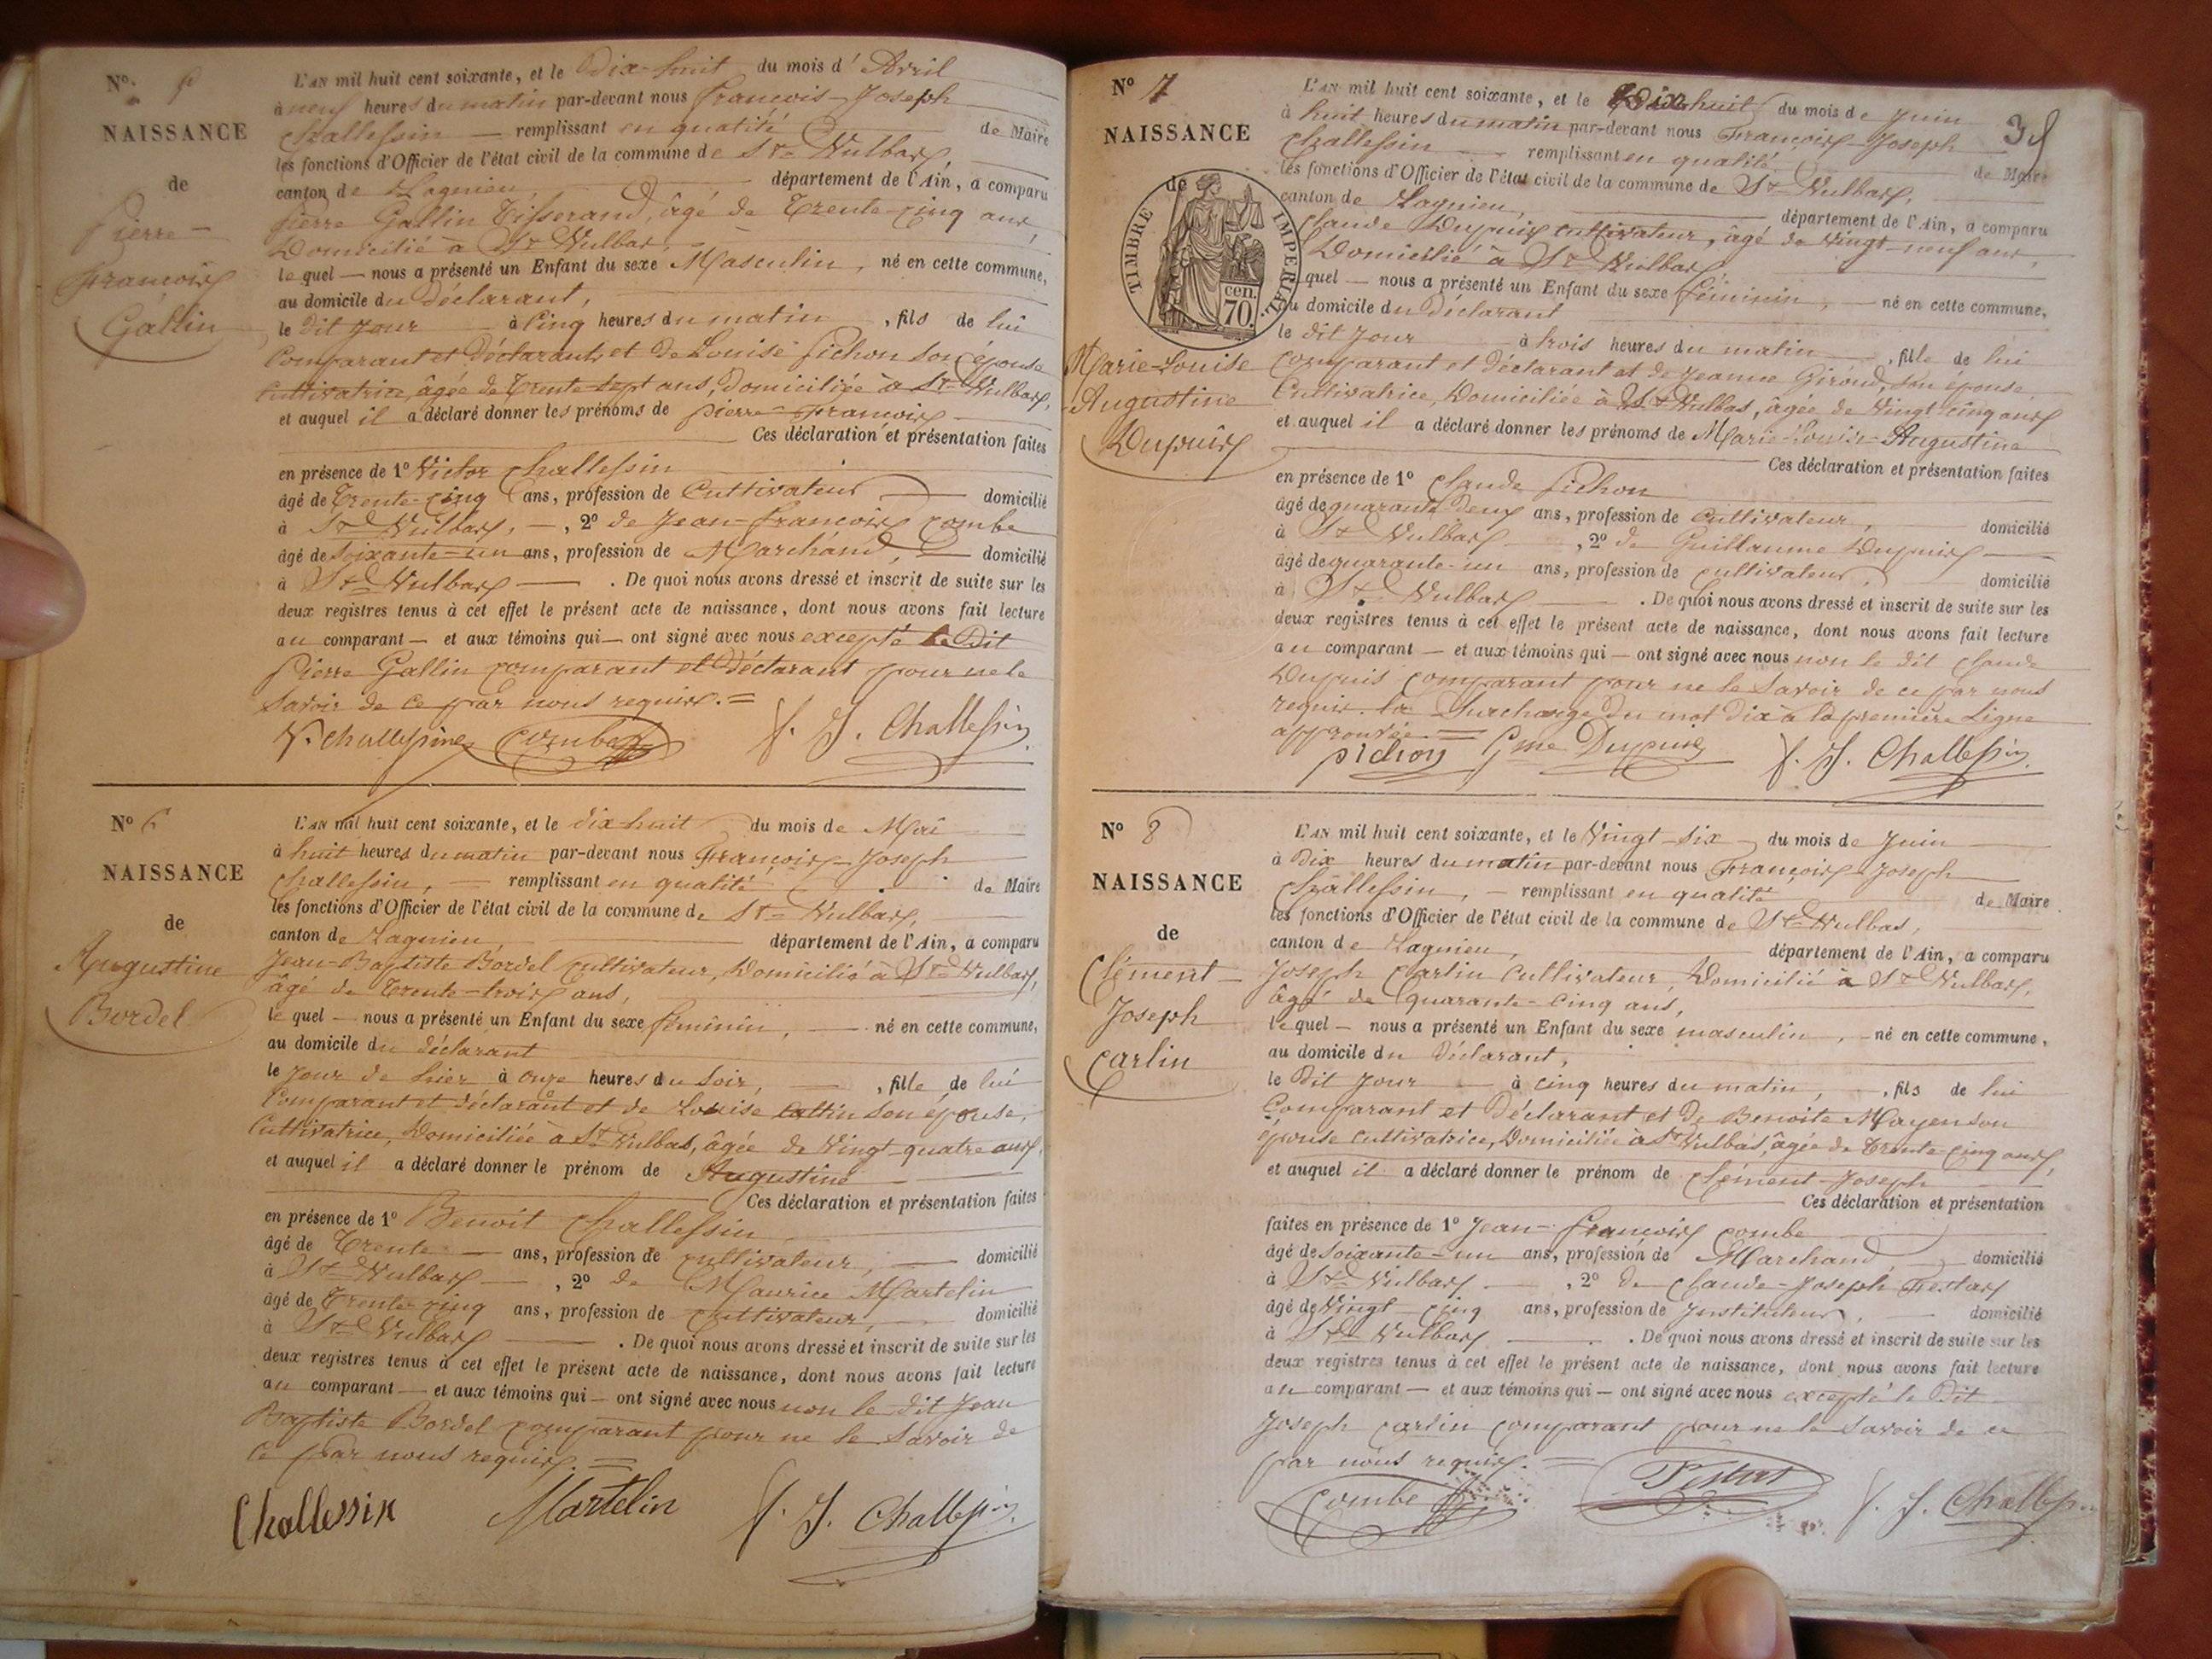 N°
NAISSANCE
de
Pierre-
François
Gallin
L'AN mil huit cent soixante, et le Dix-huit du mois d'Avril
à neuf heures du matin par-devant nous françois-Joseph
Challessin — remplissant en qualité de Maire
les fonctions d'Officier de l'état civil de la commune de St- Vulbas,
canton de Lagnieu, département de l'Ain, a comparu
pierre Gallin Tisserand, âgé de Trente-cinq ans,
Domicilié à St Vulbas,
le quel — nous a présenté un Enfant du sexe Masculin, né en cette commune,
au domicile du déclarant,
le dit jour à Cinq heures du matin, fils de lui
Comparant et Déclarant, et de Louise pichon son épouse
Cultivatrice, âgée de Trente-sept ans, Domiciliée à St-Vulbas,
et auquel il a déclaré donner les prénoms de pierre-François
Ces déclaration et présentation faites
en présence de 1° Victor Challessin
âgé de Trente-Cinq ans, profession de Cultivateur domicilié
à St Vulbas, —, 2° de Jean-François Combe
âgé de soixante-un ans, profession de Marchand, domicilié
à St Vulbas — . De quoi nous avons dressé et inscrit de suite sur les
deux registres tenus à cet effet le présent acte de naissance, dont nous avons fait lecture
au comparant — et aux témoins qui — ont signé avec nous excepté le Dit
pierre Gallin comparant et Déclarant pour ne le
savoir de ce par nous requis. =
V. challessin Combe f. J. Challessin
N° 6
NAISSANCE
de
Augustine
Bordel
L'AN mil huit cent soixante, et le dix-huit du mois de Mai
à huit heures du matin par-devant nous François-Joseph
Challessin, — remplissant en qualité de Maire
les fonctions d'Officier de l'état civil de la commune de St- Vulbas,
canton de Lagnieu, département de l'Ain, a comparu
Jean-Baptiste Bordel cultivateur, Domicilié à St-Vulbas,
âgé de Trente-trois ans,
le quel — nous a présenté un Enfant du sexe féminin, — né en cette commune,
au domicile du déclarant
le jour de hier à onze heures du soir, — , fille de lui
Comparant et déclarant et de Louise Cattin son épouse,
Cultivatrice, Domiciliée à St Vulbas, âgée de Vingt-quatre ans,
et auquel il a déclaré donner le prénom de Augustine
Ces déclaration et présentation faites
en présence de 1° Benoit Challessin
âgé de Trente — ans, profession de cultivateur, — domicilié
à St Vulbas —, 2° de Maurice Martelin
âgé de Trente-cinq ans, profession de Cultivateur, domicilié
à St- Vulbas — . De quoi nous avons dressé et inscrit de suite sur les
deux registres tenus à cet effet le présent acte de naissance, dont nous avons fait lecture
au comparant — et aux témoins qui — ont signé avec nous non le dit Jean
Baptiste Bordel comparant pour ne le savoir de
ce par nous requis. =
Challessin Martelin f. J. Challessin
N° 7
NAISSANCE
de
TIMBRE IMPERIAL
70 cen.
Marie-Louise
Augustine
Dupuis
L'AN mil huit cent soixante, et le Dix huit du mois de Juin
à huit heures du matin par-devant nous François-Joseph
Challessin — remplissant en qualité de Maire
les fonctions d'Officier de l'état civil de la commune de St Vulbas,
canton de Lagnieu, département de l'Ain, a comparu
Claude Dupuis cultivateur, âgé de Vingt-neuf ans,
Domicilié à St Vulbas,
quel — nous a présenté un Enfant du sexe féminin, — né en cette commune,
au domicile du Déclarant
le dit jour à trois heures du matin — , fille de lui
comparant et déclarant et de Jeanne Giroud, son épouse
Cultivatrice, Domiciliée à St Vulbas, âgée de Vingt-cinq ans
et auquel il a déclaré donner les prénoms de Marie-Louise-Augustine
Ces déclaration et présentation faites
en présence de 1° Claude pichon
âgé de quarante deux ans, profession de Cultivateur, domicilié
à St Vulbas —, 2° de Guillaume Dupuis —
âgé de quarante-un ans, profession de cultivateur, domicilié
à St. Vulbas — . De quoi nous avons dressé et inscrit de suite sur les
deux registres tenus à cet effet le présent acte de naissance, dont nous avons fait lecture
au comparant — et aux témoins qui — ont signé avec nous non le dit Claude
Dupuis comparant pour ne le savoir de ce par nous
requis. la Surcharge du mot Dix à la première Ligne
approuvée. =
pichon Gme Dupuis f. J. Challessin
N° 8
NAISSANCE
de
Clément-
Joseph
Carlin
L'AN mil huit cent soixante, et le Vingt-six du mois de Juin
à Dix heures du matin par-devant nous François-Joseph
Challessin, — remplissant en qualité de Maire
les fonctions d'Officier de l'état civil de la commune de St-Vulbas,
canton de Lagnieu, département de l'Ain, a comparu
Joseph Carlin Cultivateur, Domicilié à St Vulbas,
âgé de Quarante-cinq ans,
le quel — nous a présenté un Enfant du sexe masculin, — né en cette commune,
au domicile du déclarant,
le Dit jour — à cinq heures du matin, — , fils de lui
Comparant et Déclarant et de Benoite Mayen son
épouse cultivatrice, Domiciliée à St Vulbas, âgée de Trente-cinq ans,
et auquel il a déclaré donner le prénom de Clément-Joseph
Ces déclaration et présentation
faites en présence de 1° Jean-françois Combe
âgé de soixante-un ans, profession de Marchand, domicilié
à St Vulbas. —, 2° de Claude-Joseph Testas
âgé de Vingt-cinq ans, profession de Instituteur, domicilié
à St Vulbas — . De quoi nous avons dressé et inscrit de suite sur les
deux registres tenus à cet effet le présent acte de naissance, dont nous avons fait lecture
au comparant — et aux témoins qui — ont signé avec nous excepté le Dit
Joseph Carlin comparant pour ne le savoir de ce
par nous requis. =
Combe Testas f. J. Challessin